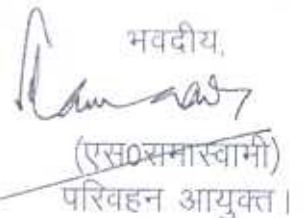 भवदीय,
(एस०रामास्वामी)
परिवहन आयुक्त।